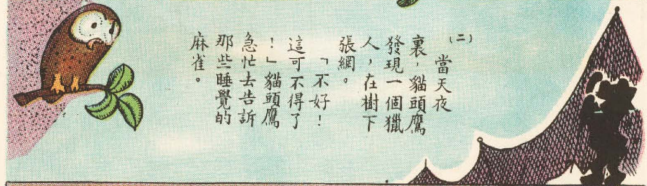 (二)
當天夜
裏，貓頭鷹
發現一個獵
人，在樹下
張網。
「不好！
這可不得了
！」貓頭鷹
急忙去告訴
那些睡覺的
麻雀。